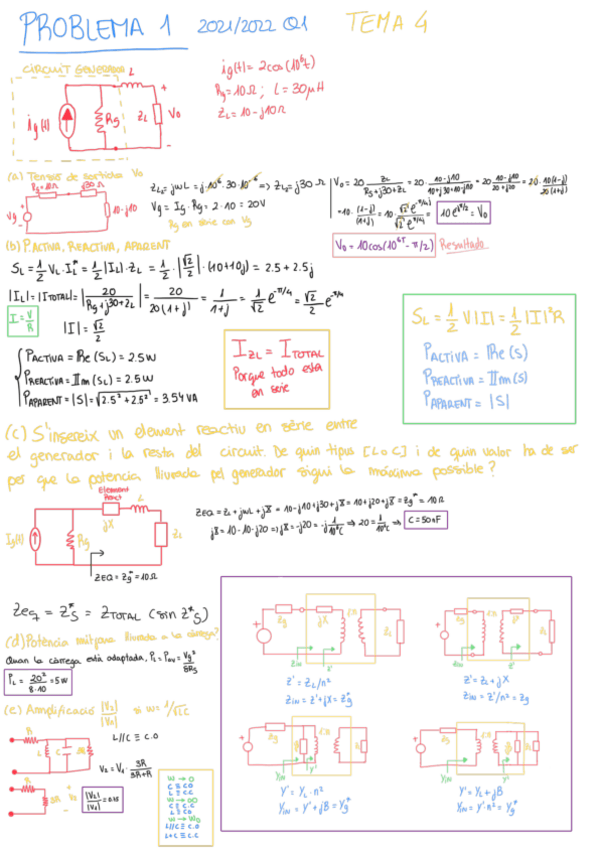 PROBLEMA 1 2021/2022 Q1 TEMA 4
CIRCUIT GENERADOR
ig(t) = 2cos(10⁶t)
Rg = 10Ω ; L = 30μH
ZL = 10 - j10Ω
L
ig(t)
Rg
ZL
V0
+
-
(a) Tensió de sortida V0
Rg = 10Ω
j30Ω
Vg
10-j10
ZL = jωL = j·10⁶·30·10⁻⁶ => ZL = j30Ω
Vg = Ig · Rg = 2·10 = 20V
Rg en sèrie con Vg
V0 = 20 ZL/(Rg+j30+ZL) = 20· (10-j10)/(10+j30+10-j10) = 20 (10-j10)/(20+j20) = 20· 10(1-j)/20(1+j)
V0 = 10cos(10⁶t - π/2) Resultado
(b) P.ACTIVA, REACTIVA, APARENT
SL = 1/2 VL·IL* = 1/2 |IL|·ZL = 1/2 · |√2/2| · (10+10j) = 2.5 + 2.5j
|IL| = |ITOTAL| = |20/(Rg+j30+ZL)| = 20/20(1+j) = 1/(1+j)
I = V/R
|I| = √2/2
PACTIVA = Re(SL) = 2.5W
PREACTIVA = Im(SL) = 2.5W
PAPARENT = |S| = √2.5²+2.5² = 3.54VA
IZL = ITOTAL
Porque todo esta
en serie
SL = 1/2 V|I| = 1/2 |I|²R
PACTIVA = Re(S)
PREACTIVA = Im(S)
PAPARENT = |S|
(c) S'insereix un element reactiu en sèrie entre
el generador i la resta del circuit. De quin tipus [L o C] i de quin valor ha de ser
per que la potencia lliurada pel generador sigui la màxima possible?
Element
React
L
jX
Ig(t)
Rg
ZL
ZEQ = Zg* = 10Ω
ZEQ = ZL + jωL + jX = 10-j10+j30+jX = 10+j20+jX = Zg* = 10Ω
jX = 10-10-j20 => jX = -j20 = -j 1/10⁶C => 20 = 1/10⁶C => C = 50nF
Zeq = ZS* = ZTOTAL (sin ZS*)
(d) Potència mitjana lliurada a la càrrega?
Quan la càrrega està adaptada, PL = PAV = Vg²/8RS
PL = 20²/8·10 = 5W
(e) Amplificació |V2|/|V1| si ω = 1/√LC
R
L
C
3R
L//C ≡ C.O
V2 = V1 · 3R/(3R+R)
R
3R
V2
|V2|/|V1| = 0.75
W → 0
C ≡ CO
L ≡ CC
W → ∞
C ≡ C.C
L ≡ CO
W → W0
L//C ≡ C.O
L+C ≡ C.C
Zg
jX
ZIN
Z'
Z' = ZL/n²
ZIN = Z' + jX = Zg*
Z' = ZL + jX
ZIN = Z'/n² = Zg
YIN
Y'
Y' = YL·n²
YIN = Y' + jB = Yg*
Zg
YIN
Y'
Y' = YL + jB
YIN = Y'·n² = Yg*